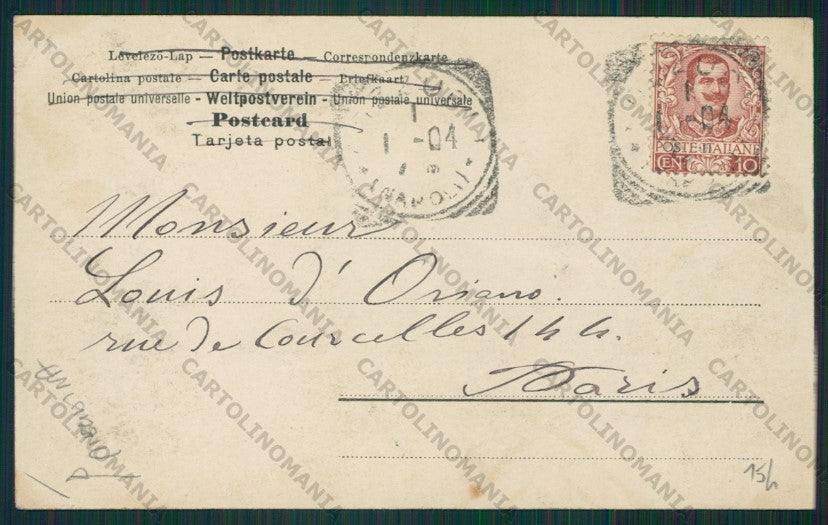 Levelező-Lap — Postkarte — Correspondenzkarte
Cartolina postale — Carte postale — Briefkaart
Union postale universelle - Weltpostverein - Union postale universale
Postcard
Tarjeta postal
1
1 -04
(NAPOLI)
1
1 -04
POSTE ITALIANE
CEN 10
Monsieur
Louis d'Oriano.
rue de Courcelles 144.
Paris
CARTOLINOMANIA